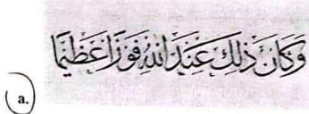 وَكَانَ ذَلِكَ عِنْدَ اللَّهِ فَوْزًا عَظِيمًا
a.